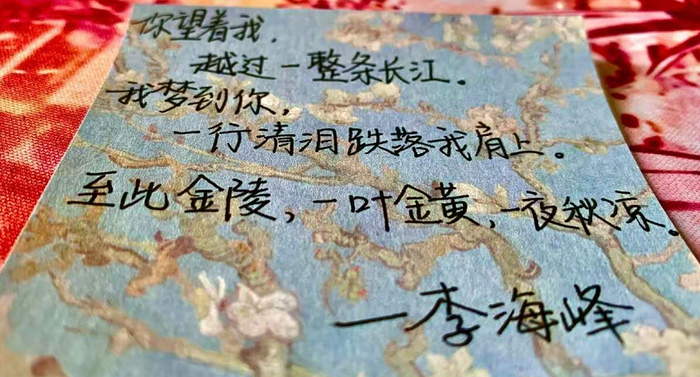 你望着我，
越过一整条长江。
我梦到你，
一行清泪跌落我肩上。
至此金陵，一叶金黄，一夜秋凉。
—李海峰